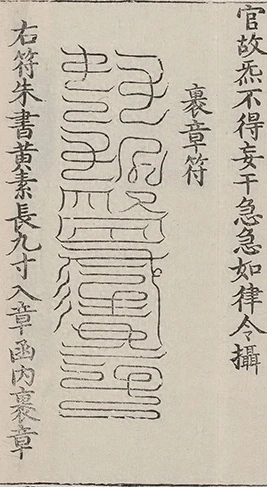 官故炁不得妄干急急如律令攝
裹章符
右符朱書黃素長九寸入章函內裹章